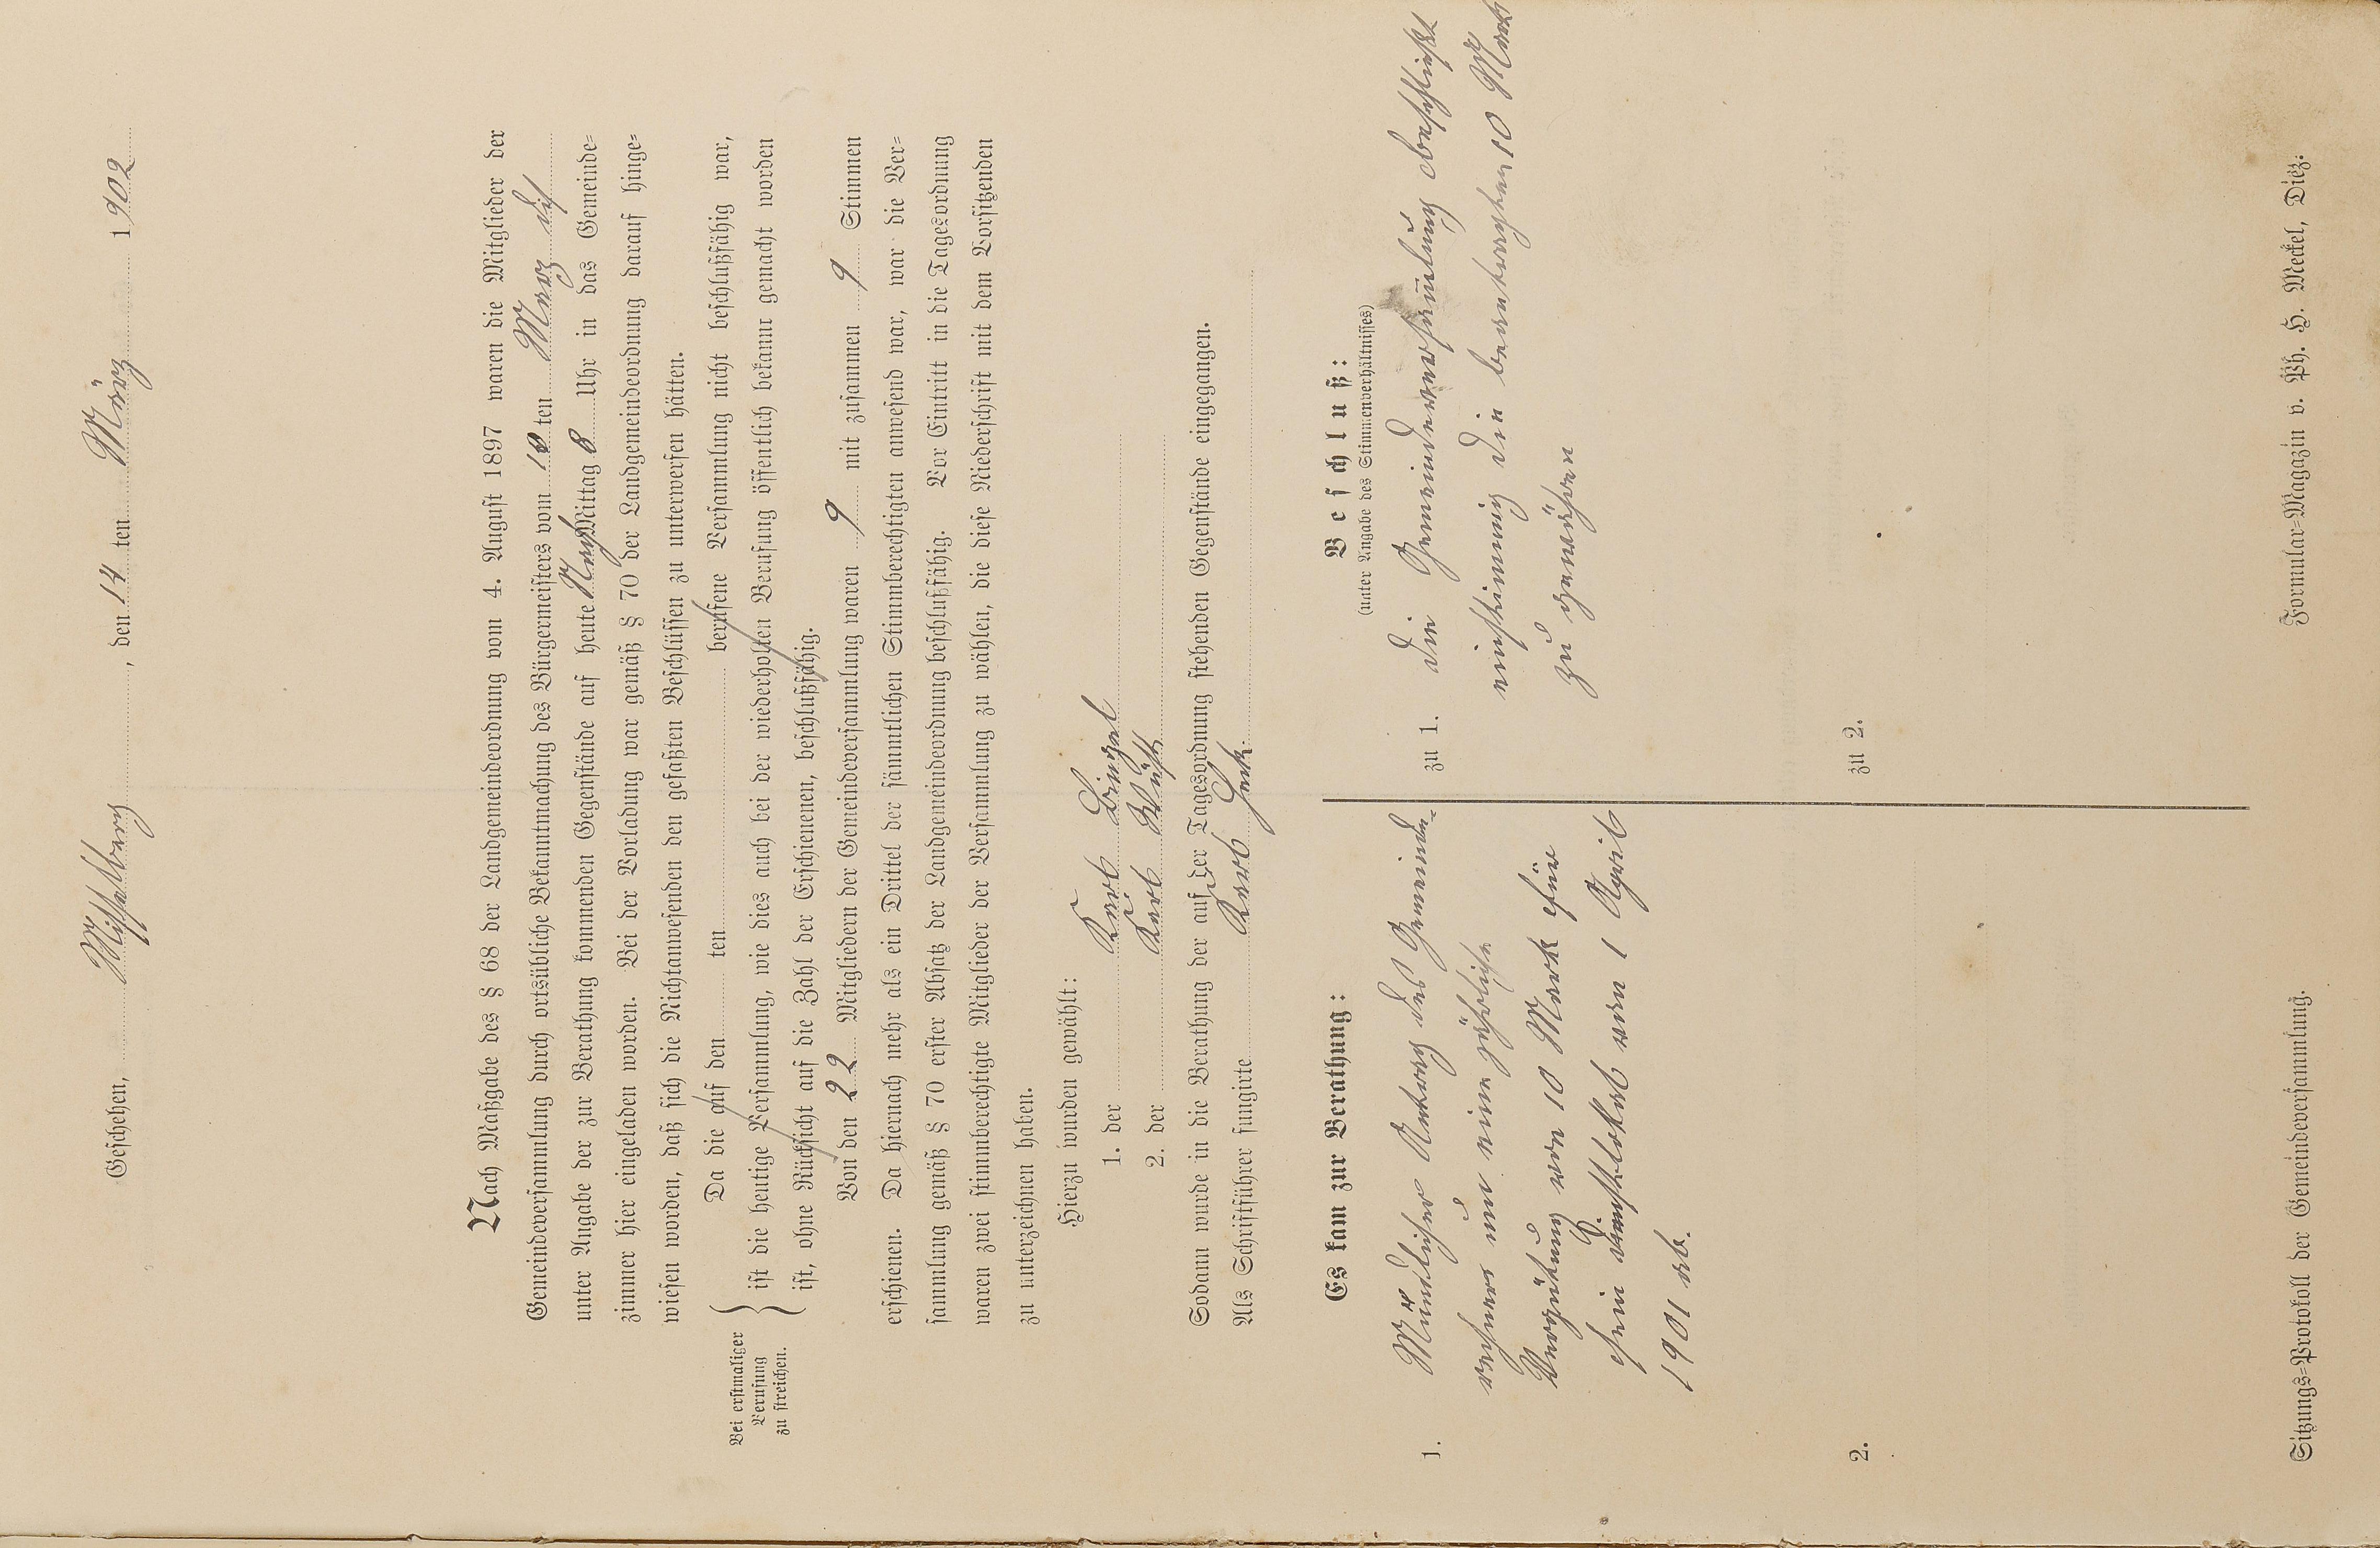 Geschehen, Misselberg, den 14 ten März 1902
Nach Maßgabe des § 68 der Landgemeindeordnung vom 4. August 1897 waren die Mitglieder der
Gemeindeversammlung durch ortsübliche Bekanntmachung des Bürgermeisters vom 10 ten Merz dss
unter Angabe der zur Berathung kommenden Gegenstände auf heute Nach Mittag 8 Uhr in das Gemeinde=
zimmer hier eingeladen worden. Bei der Vorladung war gemäß § 70 der Landgemeindeordnung darauf hinge=
wiesen worden, daß sich die Nichtanwesenden den gefaßten Beschlüssen zu unterwerfen hätten.
Bei erstmaliger
Berufung
zu streichen.
Da die auf den ten berufene Versammlung nicht beschlußfähig war,
ist die heutige Versammlung, wie dies auch bei der wiederholten Berufung öffentlich bekannt gemacht worden
ist, ohne Rücksicht auf die Zahl der Erschienenen, beschlußfähig.
Von den 22 Mitgliedern der Gemeindeversammlung waren 9 mit zusammen 9 Stimmen
erschienen. Da hiernach mehr als ein Drittel der sämmtlichen Stimmberechtigten anwesend war, war die Ver=
sammlung gemäß § 70 erster Absatz der Landgemeindeordnung beschlußfähig. Vor Eintritt in die Tagesordnung
waren zwei stimmberechtigte Mitglieder der Versammlung zu wählen, die diese Niederschrift mit dem Vorsitzenden
zu unterzeichnen haben.
Hierzu wurden gewählt:
1. der Karl Bingel
2. der Karl
Sodann wurde in die Berathung der auf der Tagesordnung stehenden Gegenstände eingegangen.
Als Schriftführer fungirte Karl
Es kam zur Berathung:
1. Mündlicher Antrag des Gemeinde=
rechners um eine jährliche
Vergütung von 10 Mark für
sein Dienstlokal vom 1 April
1901 ab.
2.
Beschluß:
(unter Angabe des Stimmenverhältnisses)
zu 1. Die Gemeindeversamlung beschließt
einstimmig die beantragten 10 Mark
zu gewähren
zu 2.
Sitzungs=Protokoll der Gemeindeversammlung.
Formular=Magazin v. Ph. H. Meckel, Diez.